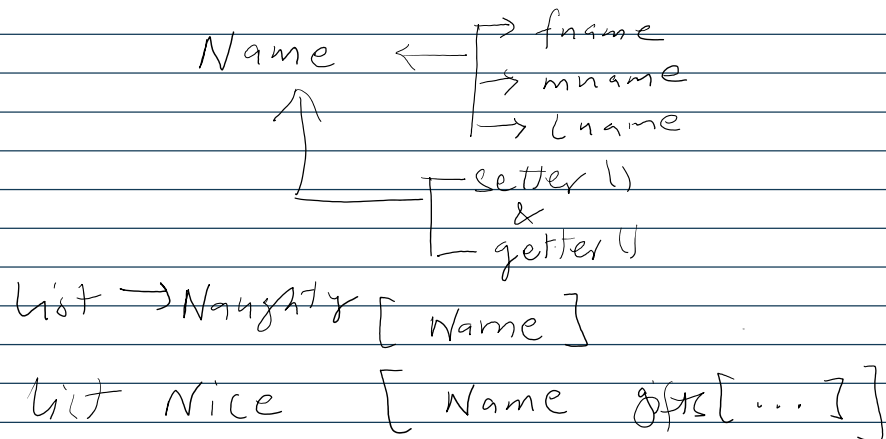 Name
fname
mname
lname
setter ()
&
getter ()
List → Naughty [ Name ]
List Nice [ Name gifts [...] ]